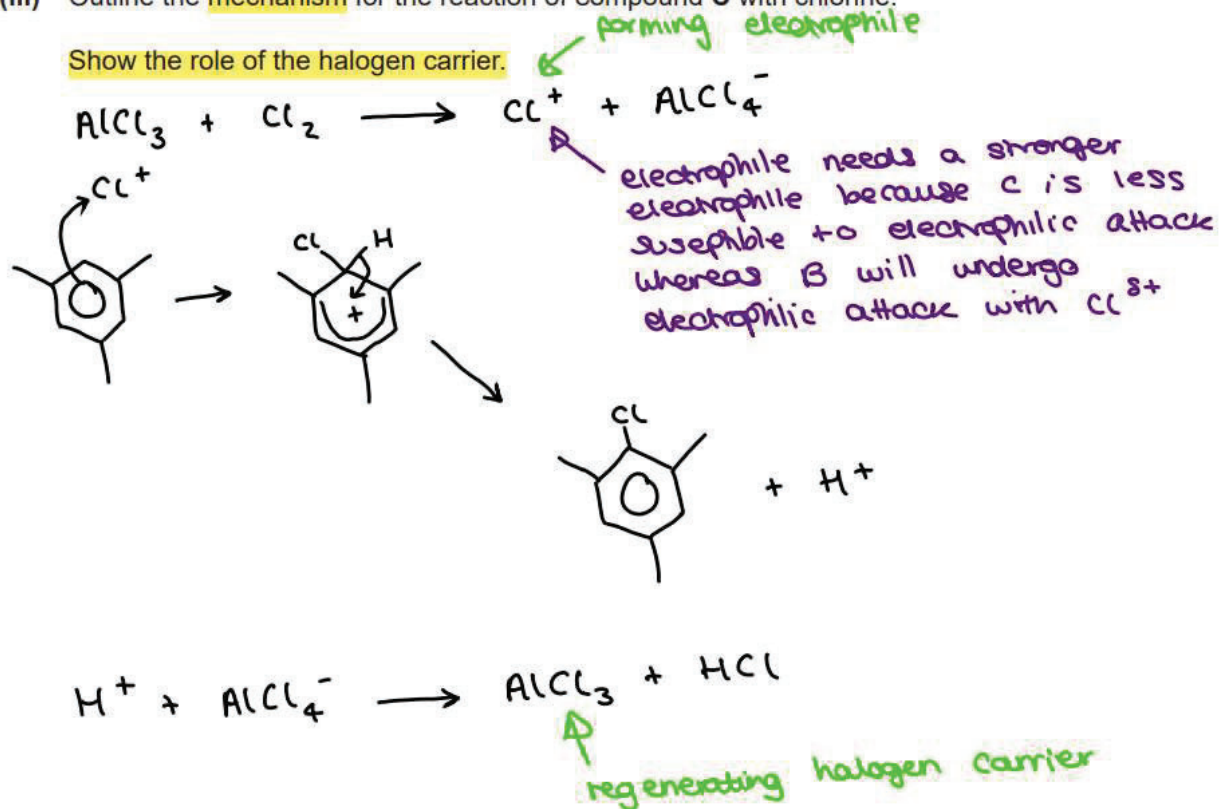 (iii) Outline the mechanism for the reaction of compound C with chlorine.
forming electrophile
Show the role of the halogen carrier.
AlCl₃ + Cl₂ ⟶ Cl⁺ + AlCl₄⁻
electrophile needs a stronger
electrophile because C is less
suseptible to electrophilic attack
whereas B will undergo
electrophilic attack with Cl^δ+
Cl⁺
Cl H
+
Cl
+ H⁺
H⁺ + AlCl₄⁻ ⟶ AlCl₃ + HCl
regenerating halogen carrier